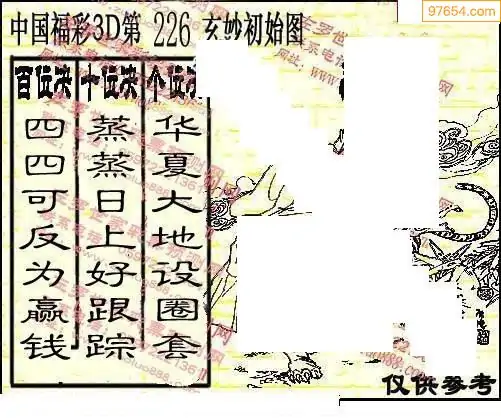 97654.com
中国福彩3D第 226 玄妙初始图
百位决 十位决 个位决
四四可反为赢钱
蒸蒸日上好跟踪
华夏大地设圈套
仅供参考